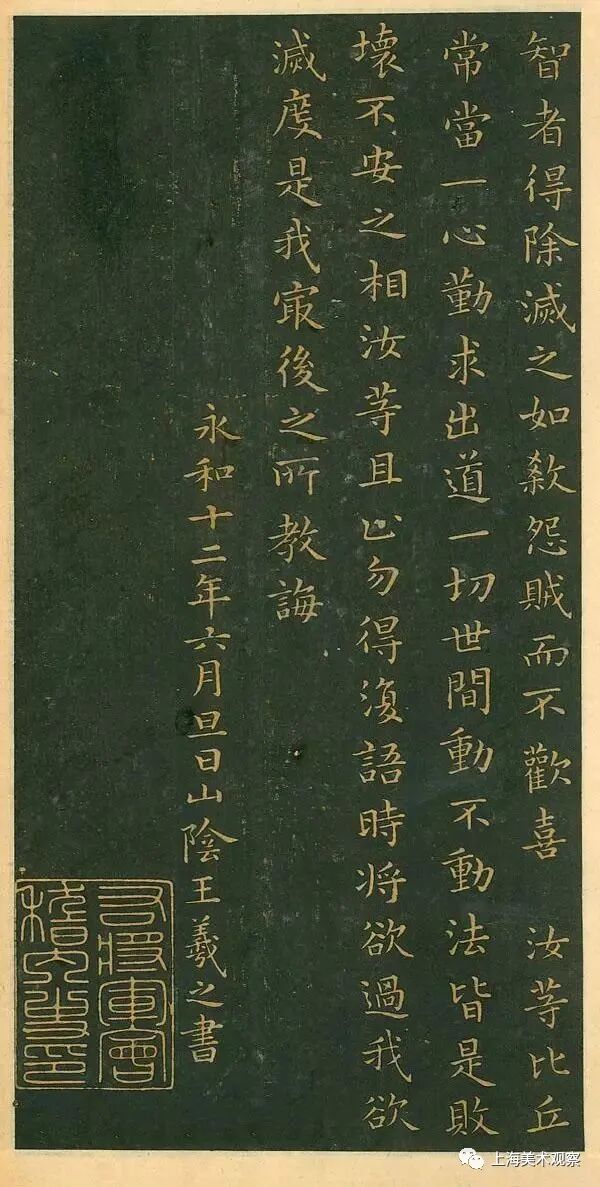 智者得除滅之如煞怨賊而不歡喜 汝等比丘
常當一心勤求出道一切世間動不動法皆是敗
壞不安之相汝等且止勿得復語時将欲過我欲
滅度是我㝡後之所教誨
永和十二年六月旦日山陰王羲之書
右将軍會
稽內史印
上海美术观察